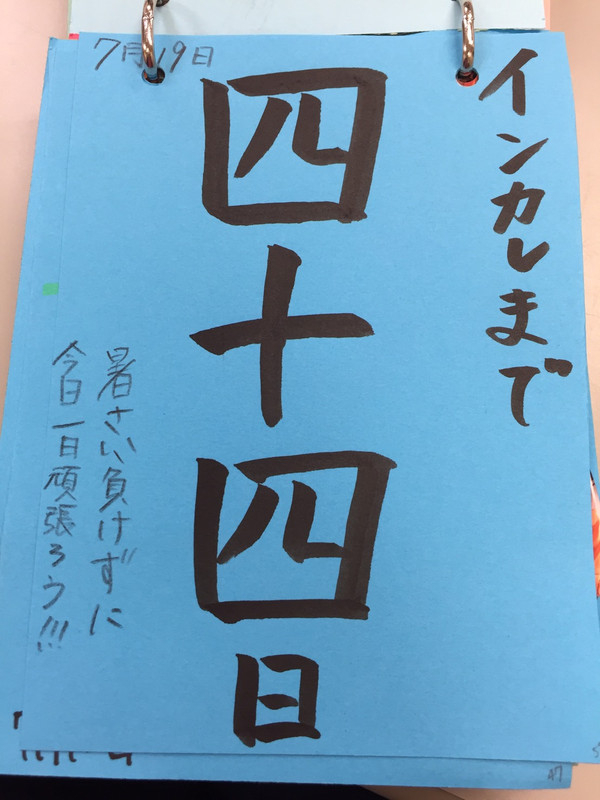 7月19日
インカレまで
四十四日
暑さい負けずに
今日一日頑張ろう!!!
47